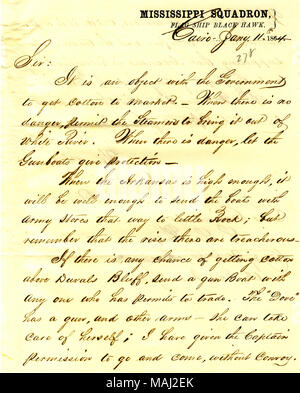 MISSISSIPPI SQUADRON,
FLAG SHIP BLACK HAWK,
Cairo Jany. 11. 1864.
278
Sir:
It is an object with the Government
to get Cotton to market. - When there is no
danger, permit the Steamers to bring it out of
White River. When there is danger, let the
Gunboats give protection -
When the Arkansas is high enough, it
will be well enough to send the boats with
army stores that way to little Rock; but
remember that the rises there are treacherous.
If there is any chance of getting cotton
above Duvals Bluff, send a gun Boat with
any one who has permits to trade. The "Dove"
has a gun, and other arms - She can take
care of herself; I have given the Captain
permission to go and come, without Convoy.
alamy
Image ID: MAJ2EK
www.alamy.com